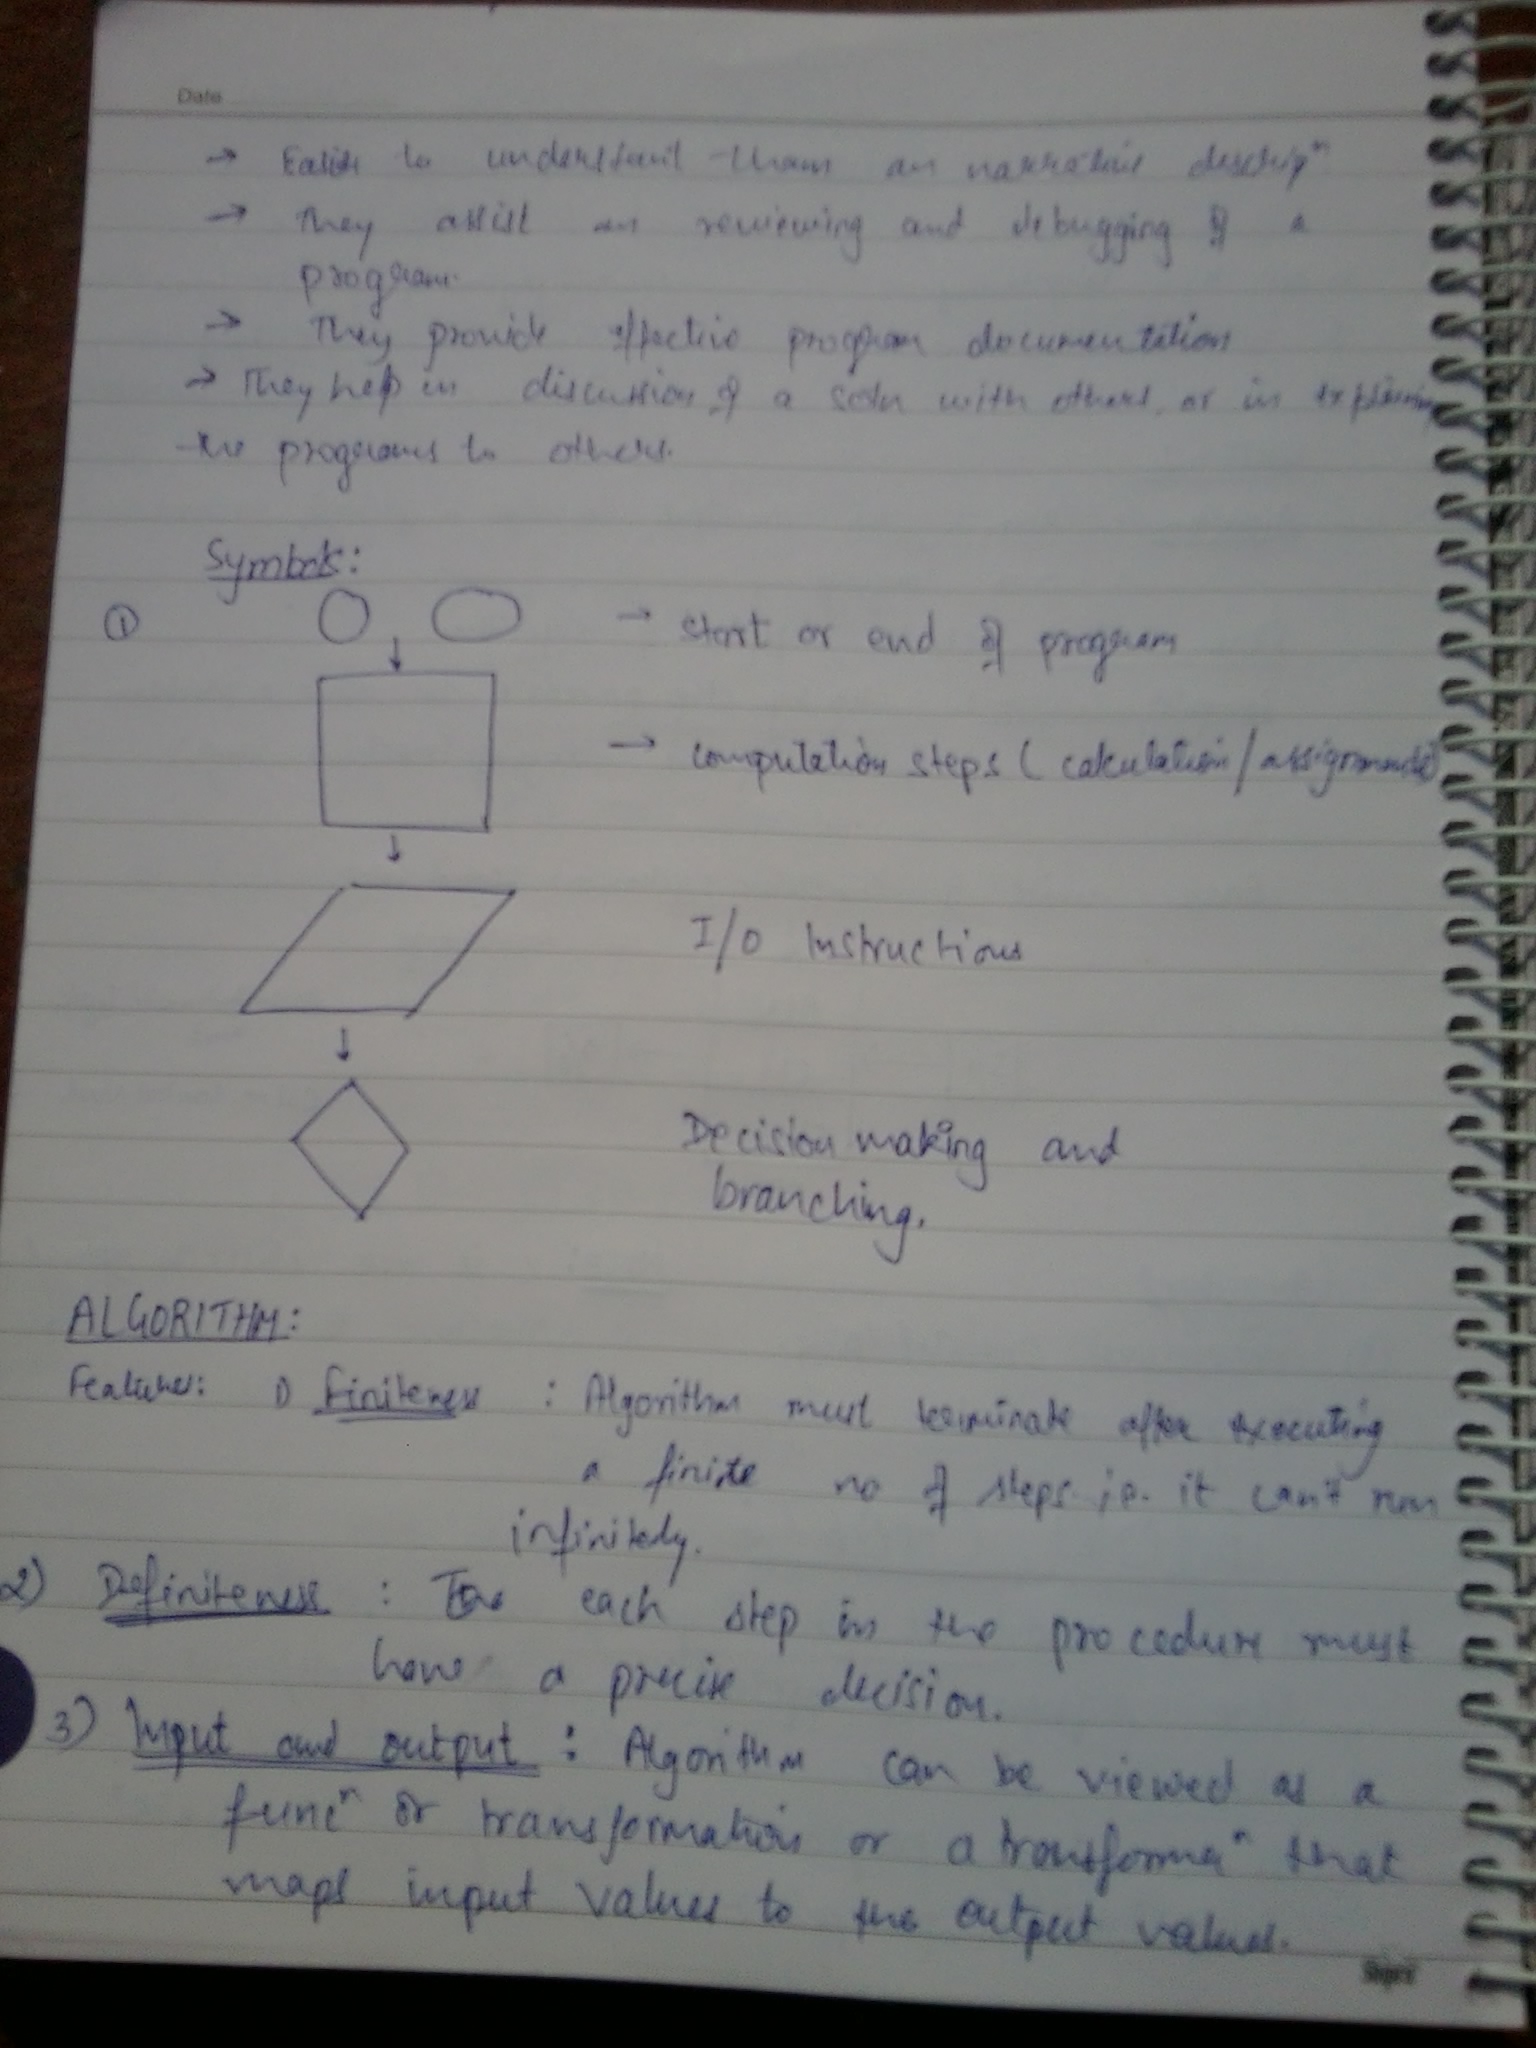 Date
→ Easier to understand than an narrative descripⁿ
→ They assist in reviewing and debugging of a
program.
→ They provide effective program documentation
→ They help in discussion of a soln with others, or in explaining
the programs to others.
Symbols:
① → start or end of program
→ computation steps (calculation/assignments)
I/O Instructions
Decision making and
branching.
ALGORITHM:
Features: 1) Finiteness : Algorithm must terminate after executing
a finite no of steps i.e. it can't run
infinitely.
2) Definiteness : each step in the procedure must
have a precise decision.
3) Input and output : Algorithm can be viewed as a
funcⁿ or transformation or a transformaⁿ that
maps input values to the output values.